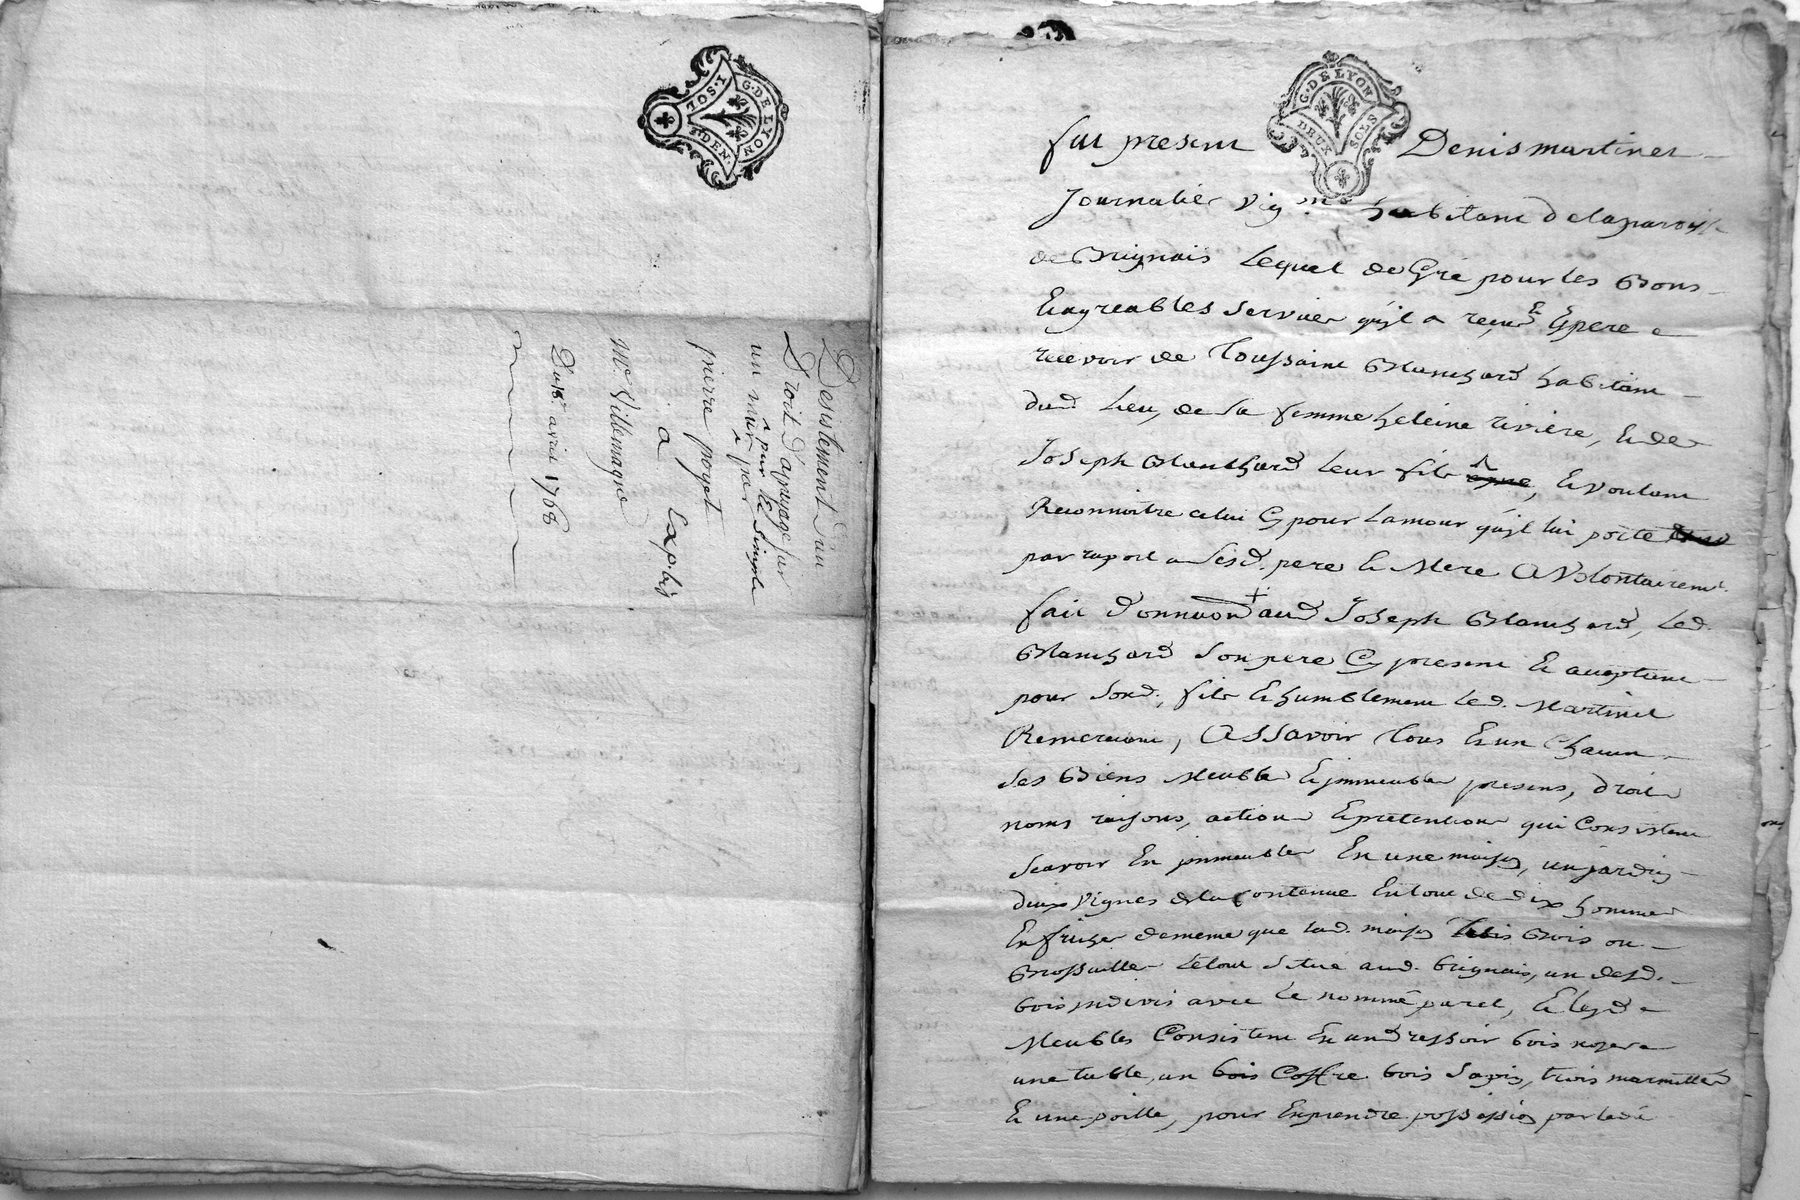 G. DE LYON
1 SOL
8 DEN.
Desistement d'un
Droit d'apuyage sur
un mur par
pour Ec Simple
pierre poyet
a Exp. bis
Mr. Villemagne
Du 18e avril 1768
G. DE LYON
DEUX SOLS
fut present Denis martinet
Journalier vign habitant delaparoisse
de Brignais Lequel de Gré pour les Bons
Et agreables services qu'jl a reçus Et Espere
recevoir de Toussaint Blanchard habitant
dud. Lieu, de sa femme heleine riviere, Et de
Joseph Blanchard Leur fils, Et voulant
Reconnoitre celui Cy pour Lamour qu'jl lui porte
par raport a Sesd. pere Et Mere A Volontairemt.
fait Donnation aud Joseph Blanchard, Led.
Blanchard Son pere Cy present Et aceptant
pour Sond. fils Et humblement Led. Martinet
Remerciant, ASSavoir Tous Et un Chacun
Ses Biens Meubles Et jmmeubles presens, droits
noms raisons, actions Et pretentions qui Consistent
Scavoir En jmmeubles En une maison, un jardin
deux Vignes dela Contenue En tout de dix hommes
En friche demême que lad. maison Bois ou
Brossailles Letout situé aud. brignais, un desd.
bois jndivis avec Le nommé purel, Et Lesd
Meubles Consistent En un dressoir bois noyer
une table, un bois Coffre bois Sapin, trois marmittes
Et une poille, pour En prendre possession par led